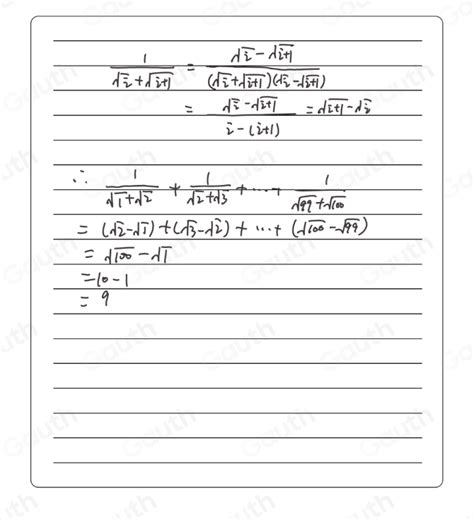 1/(√i + √(i+1)) = (√i - √(i+1))/((√i + √(i+1))(√i - √(i+1)))
= (√i - √(i+1))/(i - (i+1)) = √(i+1) - √i
∴ 1/(√1 + √2) + 1/(√2 + √3) + ⋯ + 1/(√99 + √100)
= (√2 - √1) + (√3 - √2) + ⋯ + (√100 - √99)
= √100 - √1
= 10 - 1
= 9